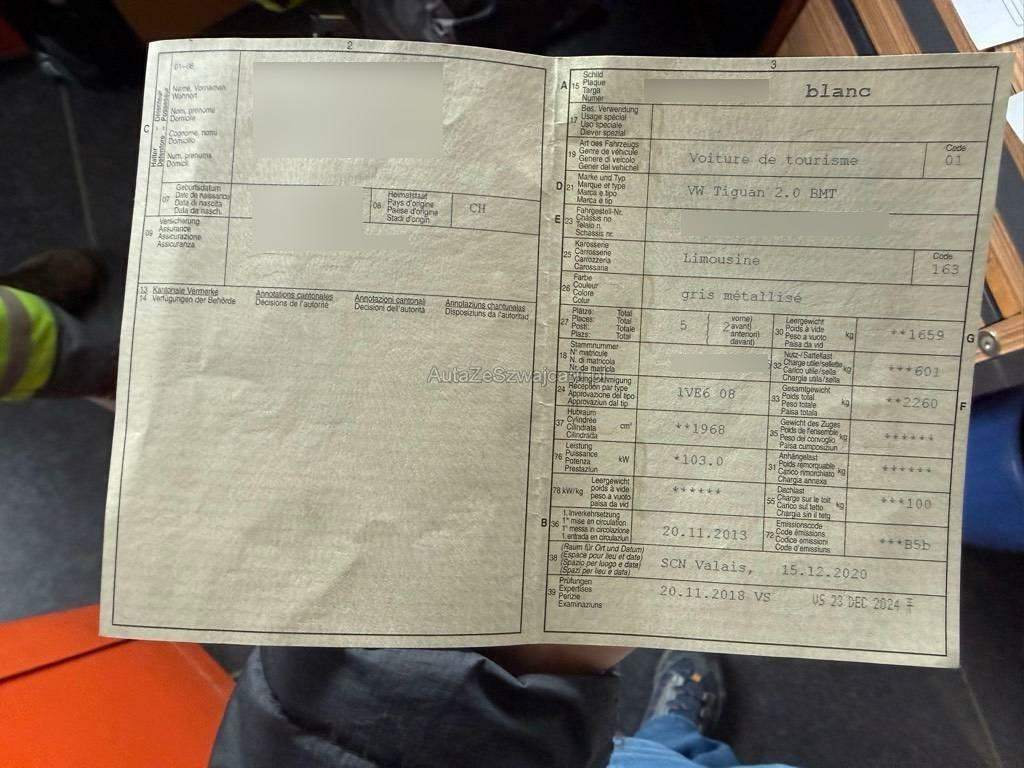 2
01-06
Name, Vornamen
Wohnort
Nom, prénoms
Domicile
Cognome, nomi
Domicilio
Num, prenums
Domicil
C
Halter
Détenteur
07
Geburtsdatum
Date de naissance
Data di nascita
Data da nasch.
08
Heimatstaat
Pays d'origine
Paese d'origine
Stadi d'origin
CH
09
Versicherung
Assurance
Assicurazione
Assicuranza
13 Kantonale Vermerke
14 Verfügungen der Behörde
Annotations cantonales
Décisions de l'autorité
Annotazioni cantonali
Decisioni dell'autorità
Annotaziuns chantunalas
Disposiziuns da l'autoritad
AutaZeSzwajcarii.pl
3
A 15
Schild
Plaque
Targa
Numer
blanc
17
Bes. Verwendung
Usage spécial
Uso speciale
Diever spezial
19
Art des Fahrzeugs
Genre de véhicule
Genere di veicolo
Gener dal vehichel
Voiture de tourisme
Code
01
D 21
Marke und Typ
Marque et type
Marca e tipo
Marca e tip
VW Tiguan 2.0 BMT
E 23
Fahrgestell-Nr.
Châssis no
Telaio n.
Schassis nr.
25
Karosserie
Carrosserie
Carrozzeria
Carossaria
Limousine
Code
163
26
Farbe
Couleur
Colore
Colur
gris métallisé
27
Plätze: Total
Places: Total
Posti: Totale
Plazs: Total
5
2
vorne)
avant)
anteriori)
davant)
30
Leergewicht
Poids à vide
Peso a vuoto
Paisa da vid
kg
**1659
G
18
Stammnummer
N° matricule
N. di matricola
Nr. da matricla
32
Nutz-/Sattellast
Charge utile/sellette
Carico utile/sella
Chargia utila/sella
kg
***601
24
Typengenehmigung
Réception par type
Approvazione del tipo
Approvaziun dal tip
1VE6 08
33
Gesamtgewicht
Poids total
Peso totale
Paisa totala
kg
**2260
F
37
Hubraum
Cylindrée
Cilindrata
Cilindrada
cm³
**1968
35
Gewicht des Zuges
Poids de l'ensemble
Peso del convoglio
Paisa cumposiziun
kg
******
76
Leistung
Puissance
Potenza
Prestaziun
kW
*103.0
31
Anhängelast
Poids remorquable
Carico rimorchiato
Chargia annexa
kg
******
78 kW/kg
Leergewicht
poids à vide
peso a vuoto
paisa da vid
******
55
Dachlast
Charge sur le toit
Carico sul tetto
Chargia sin il tetg
kg
***100
B 36
1. Inverkehrsetzung
1re mise en circulation
1a messa in circolazione
1. entrada en circulaziun
20.11.2013
72
Emissionscode
Code émissions
Codice emissioni
Code d'emissiuns
***B5b
38
(Raum für Ort und Datum)
(Espace pour lieu et date)
(Spazio per luogo e data)
(Spazi per lieu e data)
SCN Valais, 15.12.2020
39
Prüfungen
Expertises
Perizie
Examinaziuns
20.11.2018 VS
VS 23 DEC 2024